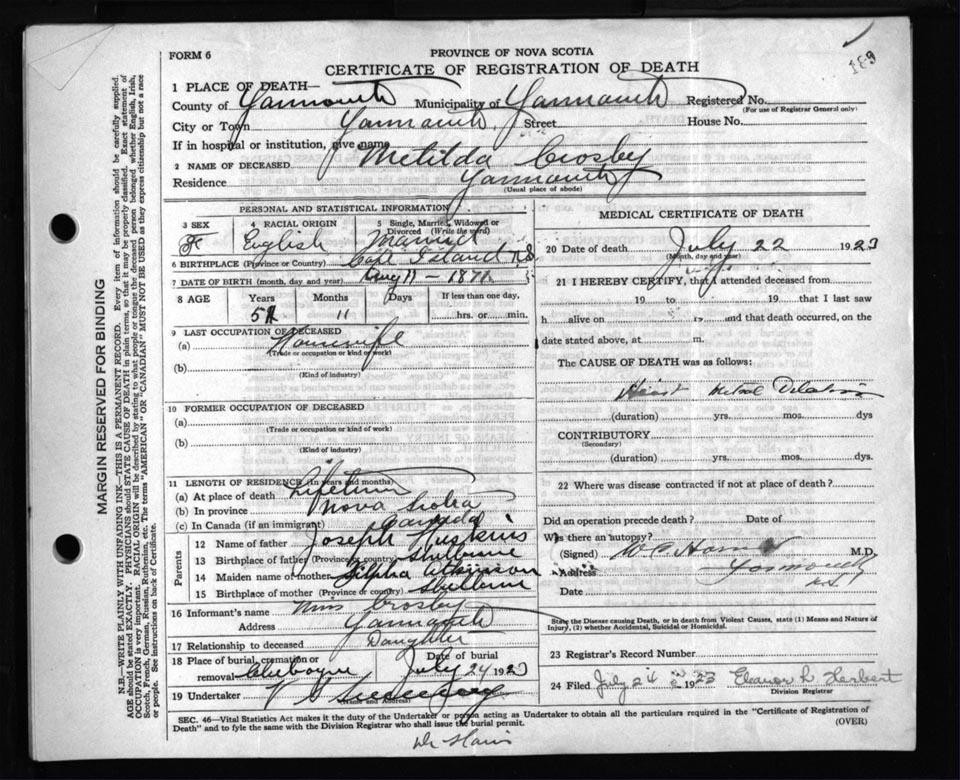 FORM 6
PROVINCE OF NOVA SCOTIA
CERTIFICATE OF REGISTRATION OF DEATH
1 PLACE OF DEATH—
County of Yarmouth Municipality of Yarmouth Registered No.
(For use of Registrar General only)
City or Town Yarmouth, Street House No.
If in hospital or institution, give name
2 NAME OF DECEASED Metilda Crosby
Residence Yarmouth
(Usual place of abode)
PERSONAL AND STATISTICAL INFORMATION
3 SEX 4 RACIAL ORIGIN 5 Single, Married, Widowed or Divorced (Write the word)
F English Married
6 BIRTHPLACE (Province or Country) Cape Island N.S.
7 DATE OF BIRTH (month, day and year) Aug 11 - 1871
8 AGE Years Months Days If less than one day,
51 11 hrs. or min.
9 LAST OCCUPATION OF DECEASED
(a) Housewife
(Trade or occupation or kind of work)
(b)
(Kind of industry)
10 FORMER OCCUPATION OF DECEASED
(a)
(Trade or occupation or kind of work)
(b)
(Kind of industry)
11 LENGTH OF RESIDENCE (In years and months)
(a) At place of death Lifetime
(b) In province Nova Scotia
(c) In Canada (if an immigrant) Canada
Parents
12 Name of father Joseph Huskins
13 Birthplace of father (Province or country) Shelburne
14 Maiden name of mother Atkinson
15 Birthplace of mother (Province or country) Shelburne
16 Informant's name Miss Crosby
Address Yarmouth
17 Relationship to deceased Daughter
18 Place of burial, cremation or removal Date of burial
July 24 1923
19 Undertaker
(Name and Address)
MEDICAL CERTIFICATE OF DEATH
20 Date of death July 22 1923
(Month, day and year)
21 I HEREBY CERTIFY, that I attended deceased from
19 to 19 that I last saw
h alive on and that death occurred, on the
date stated above, at m.
The CAUSE OF DEATH was as follows:
(duration) yrs. mos. dys
CONTRIBUTORY
(Secondary)
(duration) yrs. mos. dys.
22 Where was disease contracted if not at place of death?
Did an operation precede death? Date of
Was there an autopsy?
(Signed) M.D.
Address Yarmouth
N.S.
Date
State the Disease causing Death, or in death from Violent Causes, state (1) Means and Nature of Injury, (2) whether Accidental, Suicidal or Homicidal.
23 Registrar's Record Number
24 Filed July 24 1923 Eleanor L. Herbert
Division Registrar
SEC. 46—Vital Statistics Act makes it the duty of the Undertaker or person acting as Undertaker to obtain all the particulars required in the "Certificate of Registration of
Death" and to fyle the same with the Division Registrar who shall issue the burial permit.
(OVER)
MARGIN RESERVED FOR BINDING
N.B.—WRITE PLAINLY WITH UNFADING INK—THIS IS A PERMANENT RECORD. Every item of information should be carefully supplied.
AGE should be stated EXACTLY. PHYSICIANS should STATE CAUSE OF DEATH in plain terms, so that it may be properly classified. Exact statement of
OCCUPATION is very important. RACIAL ORIGIN will be described by stating to what people or tongue the deceased person belonged, whether English, Irish,
Scotch, French, German, Russian, Ruthenian, etc. The terms "AMERICAN" OR "CANADIAN" MUST NOT BE USED as they express citizenship but not a race
or people. See instructions on back of Certificate.